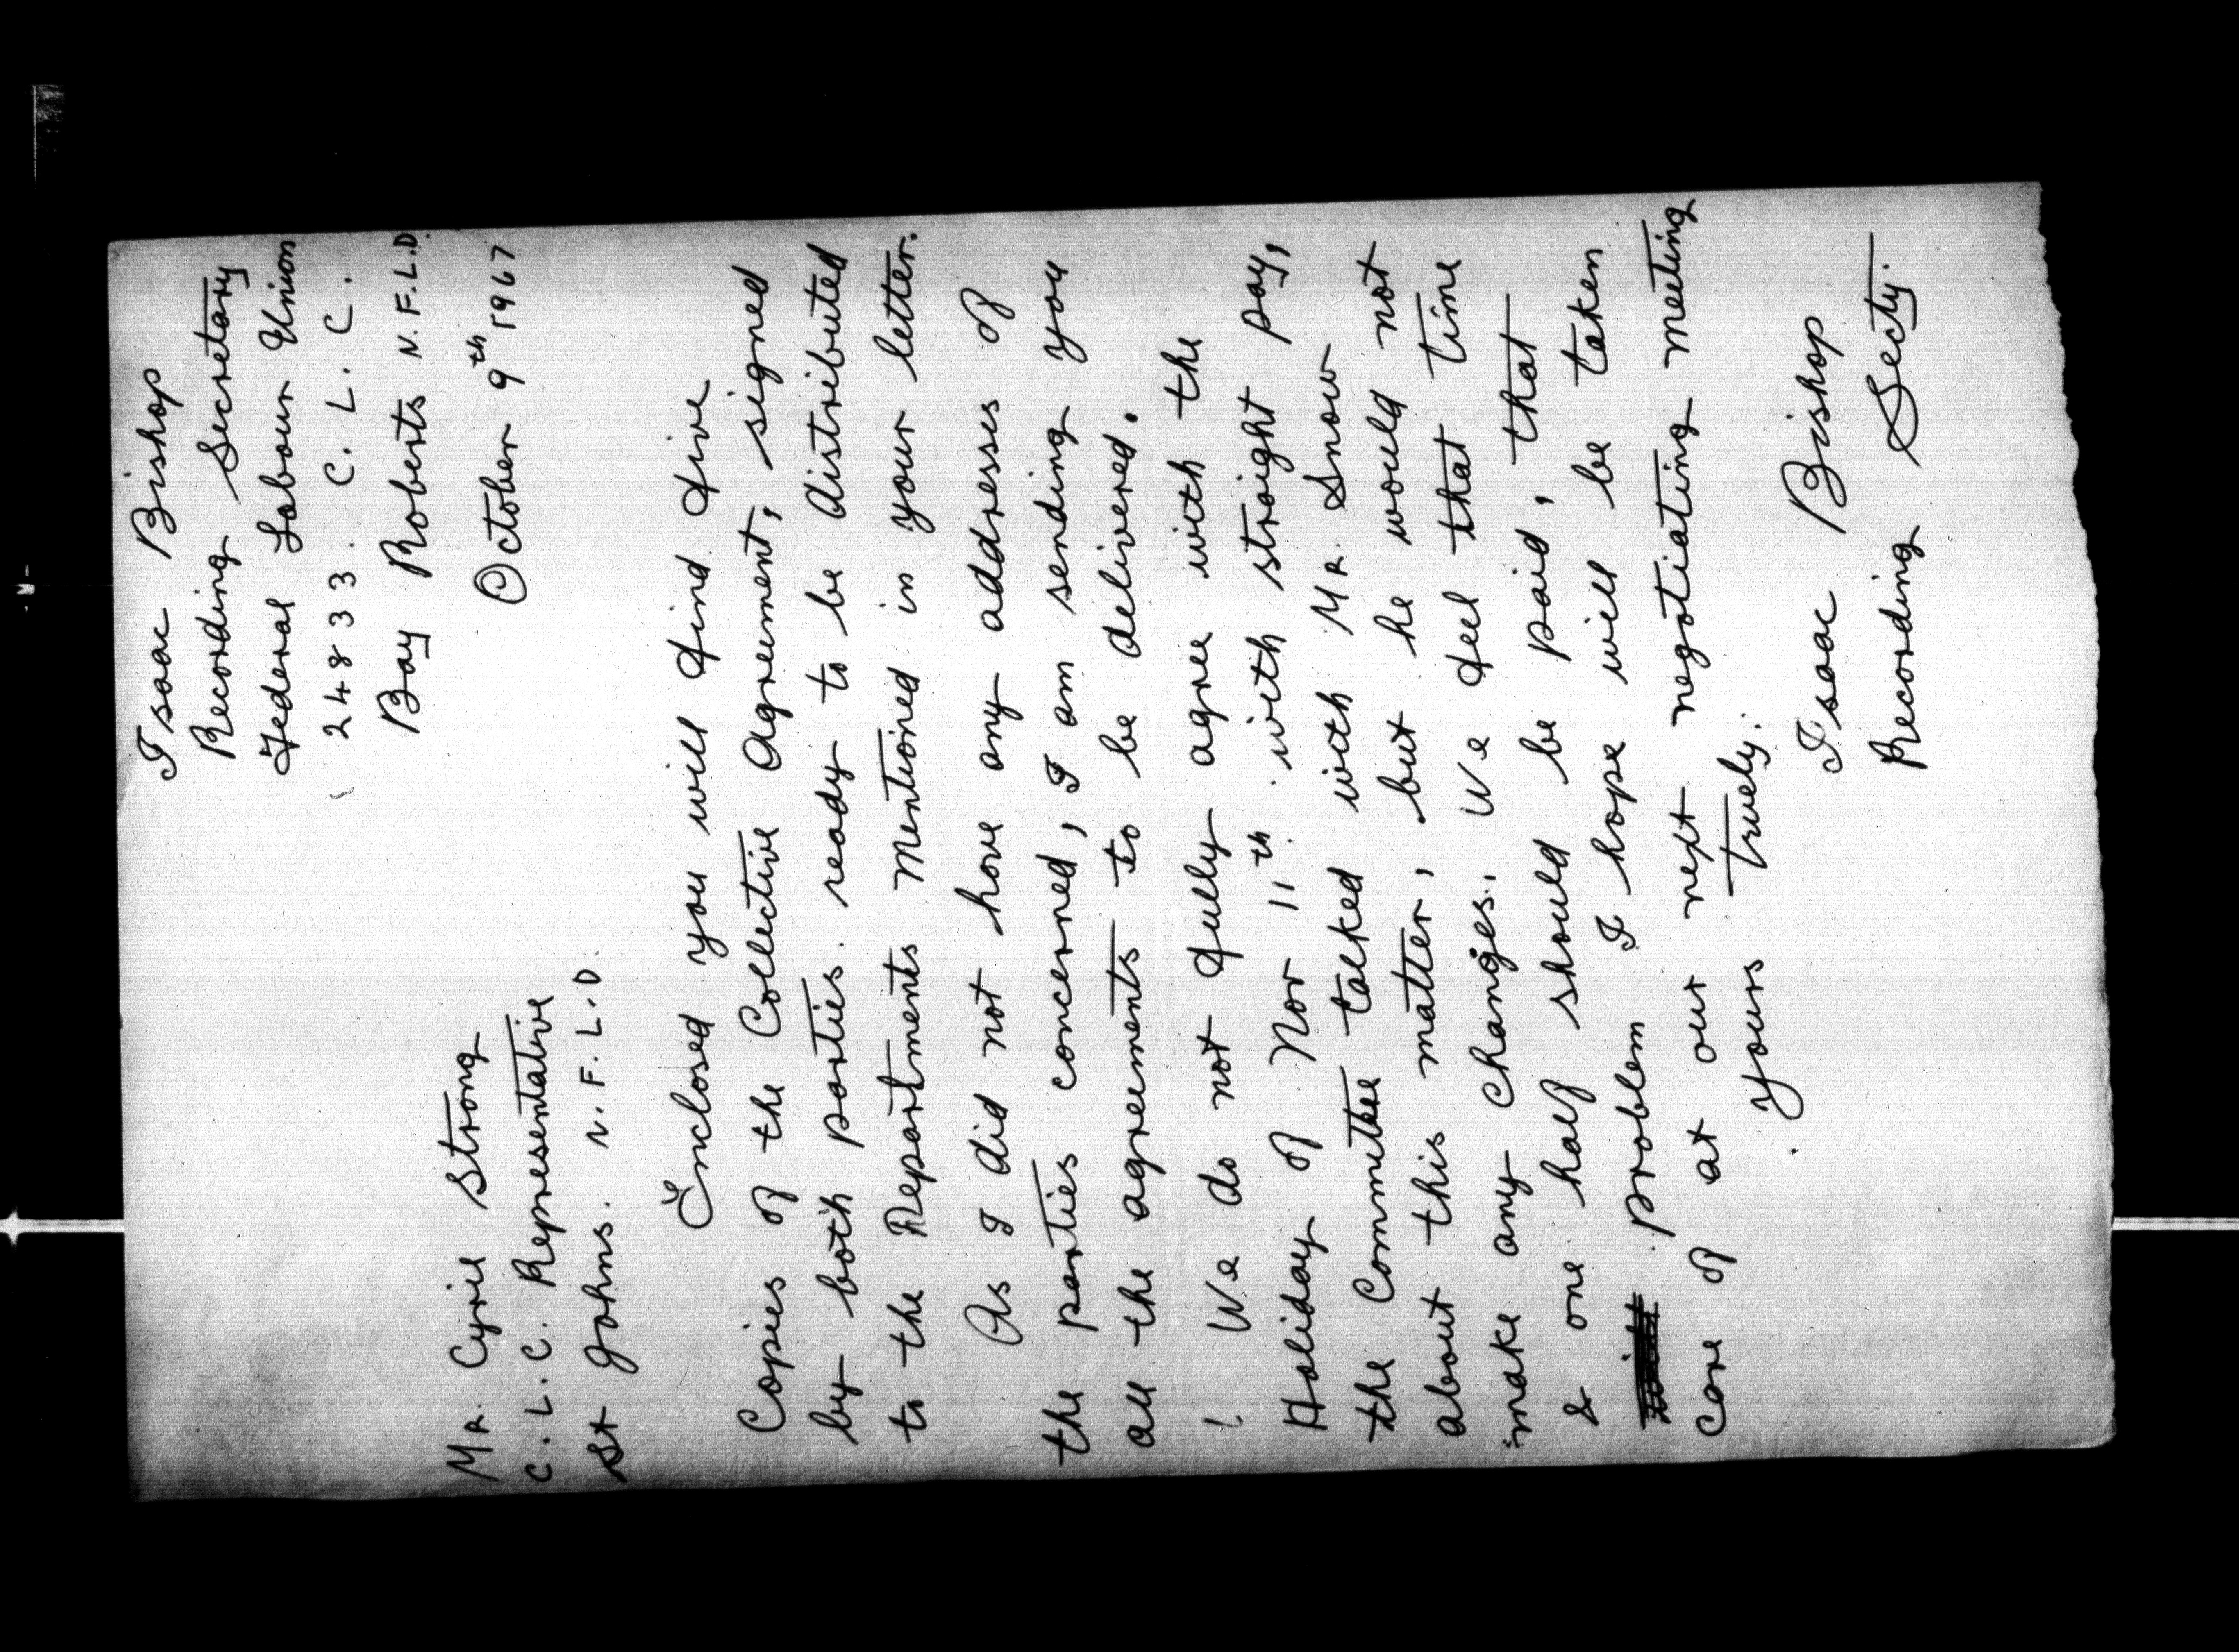 Isaac Bishop
Recording Secretary
Federal Labour Union
24833. C. L. C.
Bay Roberts N.F.L.D.
October 9th 1967
Mr. Cyril Strong
C.L.C. Representative
St Johns. N.F.L.D.
Enclosed you will find five
Copies of the Collective Agreement, signed
by both parties. ready to be distributed
to the Reportments Mentioned in your letter.
As I did not have any addresses of
the parties concerned, I am sending you
all the agreements to be delivered.
We do not fully agree with the
Holiday of Nov 11th. with straight pay,
the Committee talked with Mr. Snow
about this matter, but he would not
make any changes. We feel that time
& one half should be paid, that
problem I hope will be taken
care of at our next negotiating meeting
yours truely.
Isaac Bishop
Recording Secty.